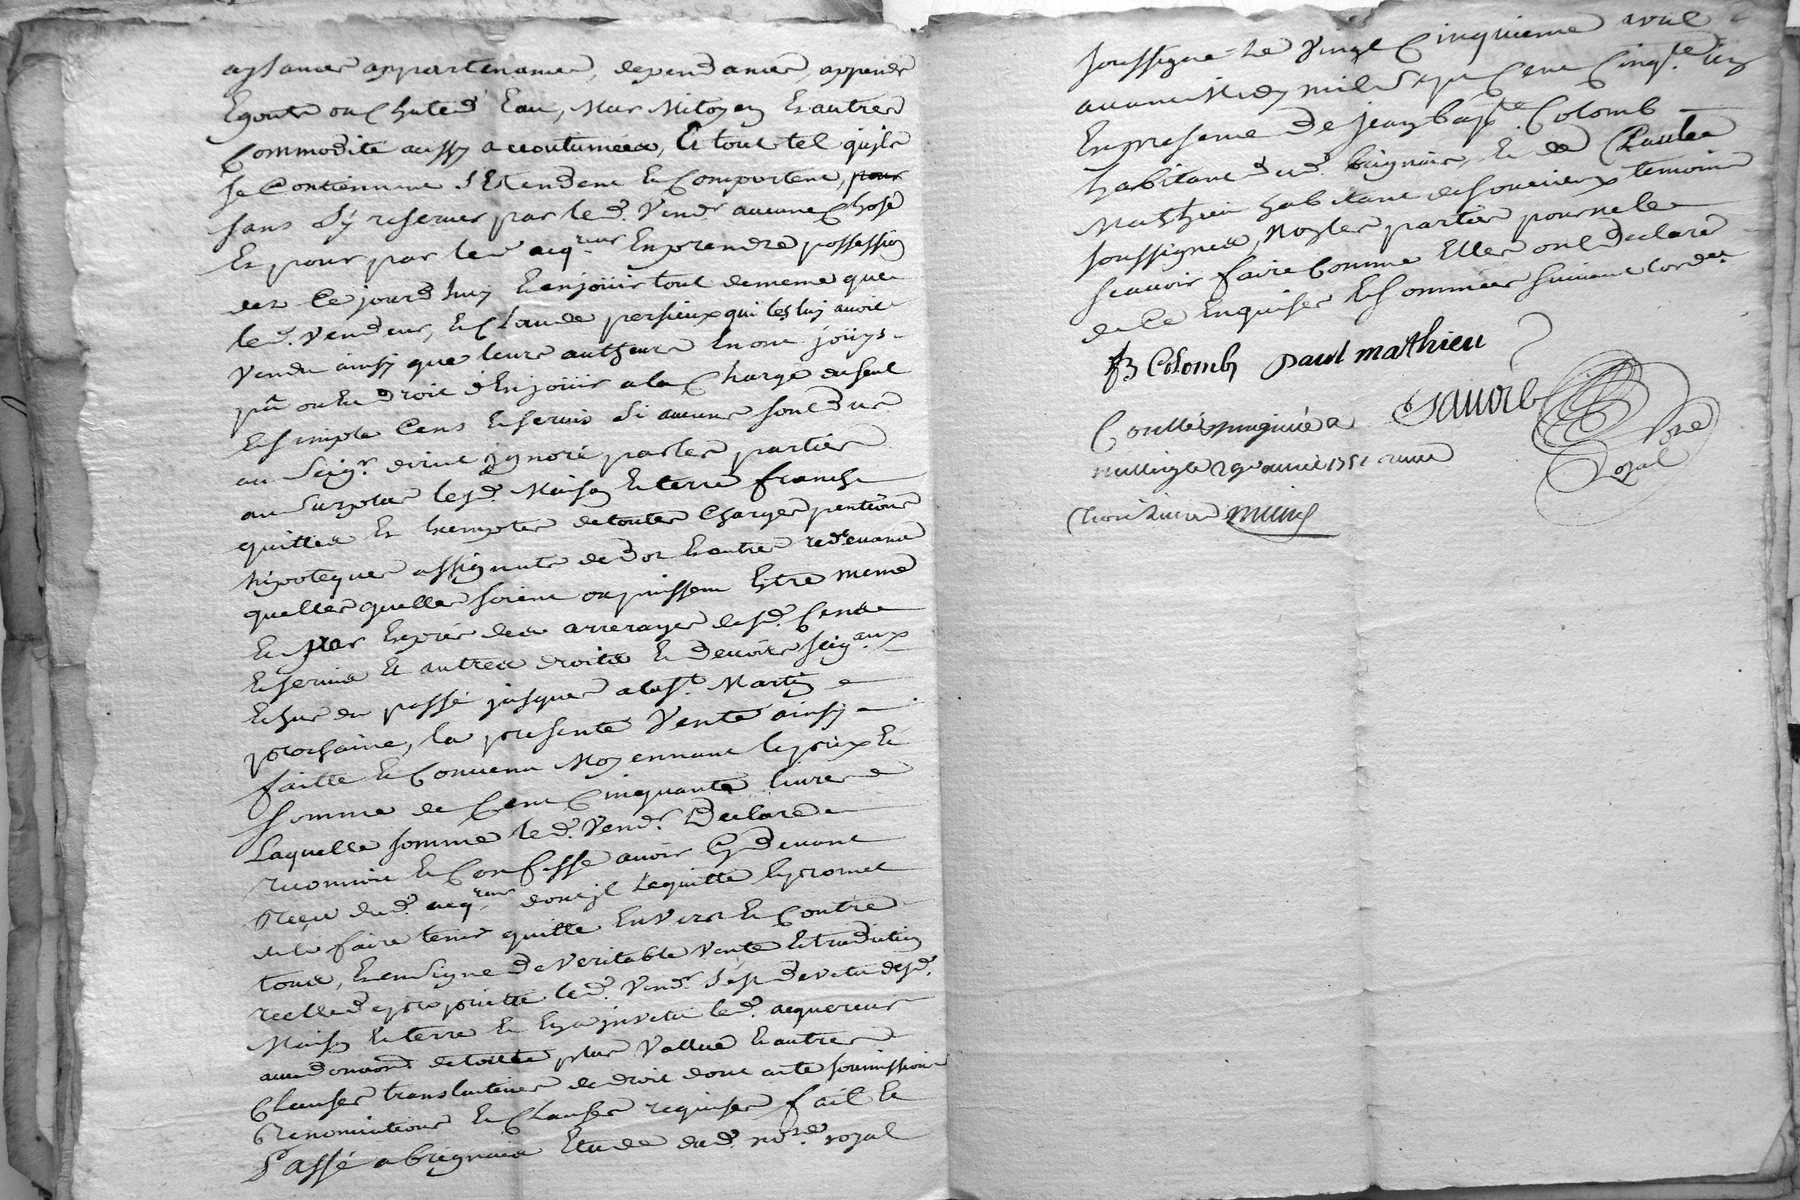 aysances appartenances, dependances, appends
Egouts ou Chute d'Eau, Mur Mitoyen Et autres
Commodité aussy accoutumées, Et tout tel qu'ils
se Contiennent s'Etendent Et Comportent, pour
sans s'y reserver par led. Vendr aucune Chose
Et pour par led acqreur En prendre possession
dez Ce jourd'huy Et en joüir tout de meme que
led. Vendeur, Et Claude persieux qui les luy avoit
Vendu ainsy que leurs autheurs En ont joüys
pû ou Eu droit d'En joüir a la Charge du seul
Et simple Cens Et servis si aucuns sont dus
au Seigr. direct ignoré par les parties
au surplus lesd. Maison Et terre franche
quittes Et Exemptes de toutes Charges pentions
hipoteques assignats de dot Et autres redevance
quelles quelles soient ou puissent Estre meme
Et par Exprés des arrerages desd. Cens
Et servis Et autres droits Et devoirs seigaux
Echus du passé jusques a la St. Martin
prochaine, la presente Vente ainsy
faitte Et Convenu Moyennant le prix Et
somme de Cent Cinquante livres
Laquelle somme led. Vendr. Declare
reconnoit Et Confesse avoir Cy devant
Reçeu dud. acqreur dont il Le quitte Et promet
de le faire tenir quitte Envers Et Contre
tous, Et en signe de Veritable Vente Et tradition
reelle d Et pre jouitte led. Vendr. s'est devetu desd.
Maison Et terre Et En a investu led. acquereur
aud donnant de toutte plus Vallue Et autres
Clauses translatives de droit dont acte soumissions
Renonciations Et Clauses requises fait Et
Passé a brignais Etude dud. nore. royal
soussigné Le Vingt Cinquieme avril
avant Midy mil sept Cent Cinqte. un
En presence de jean bapte Colomb
habitant dud. brignais Et de Paul
Mathieu habitant de soucieux temoins
soussignés, Non les parties pour ne le
scavoir faire Comme Elles ont declaré
de Ce Enquises Et sommées suivant l'ordce
JB Colomb paul mathieu
Savoie
Nore
Royal
Conllé a
le 29e avril 1751 reçu
trois livres